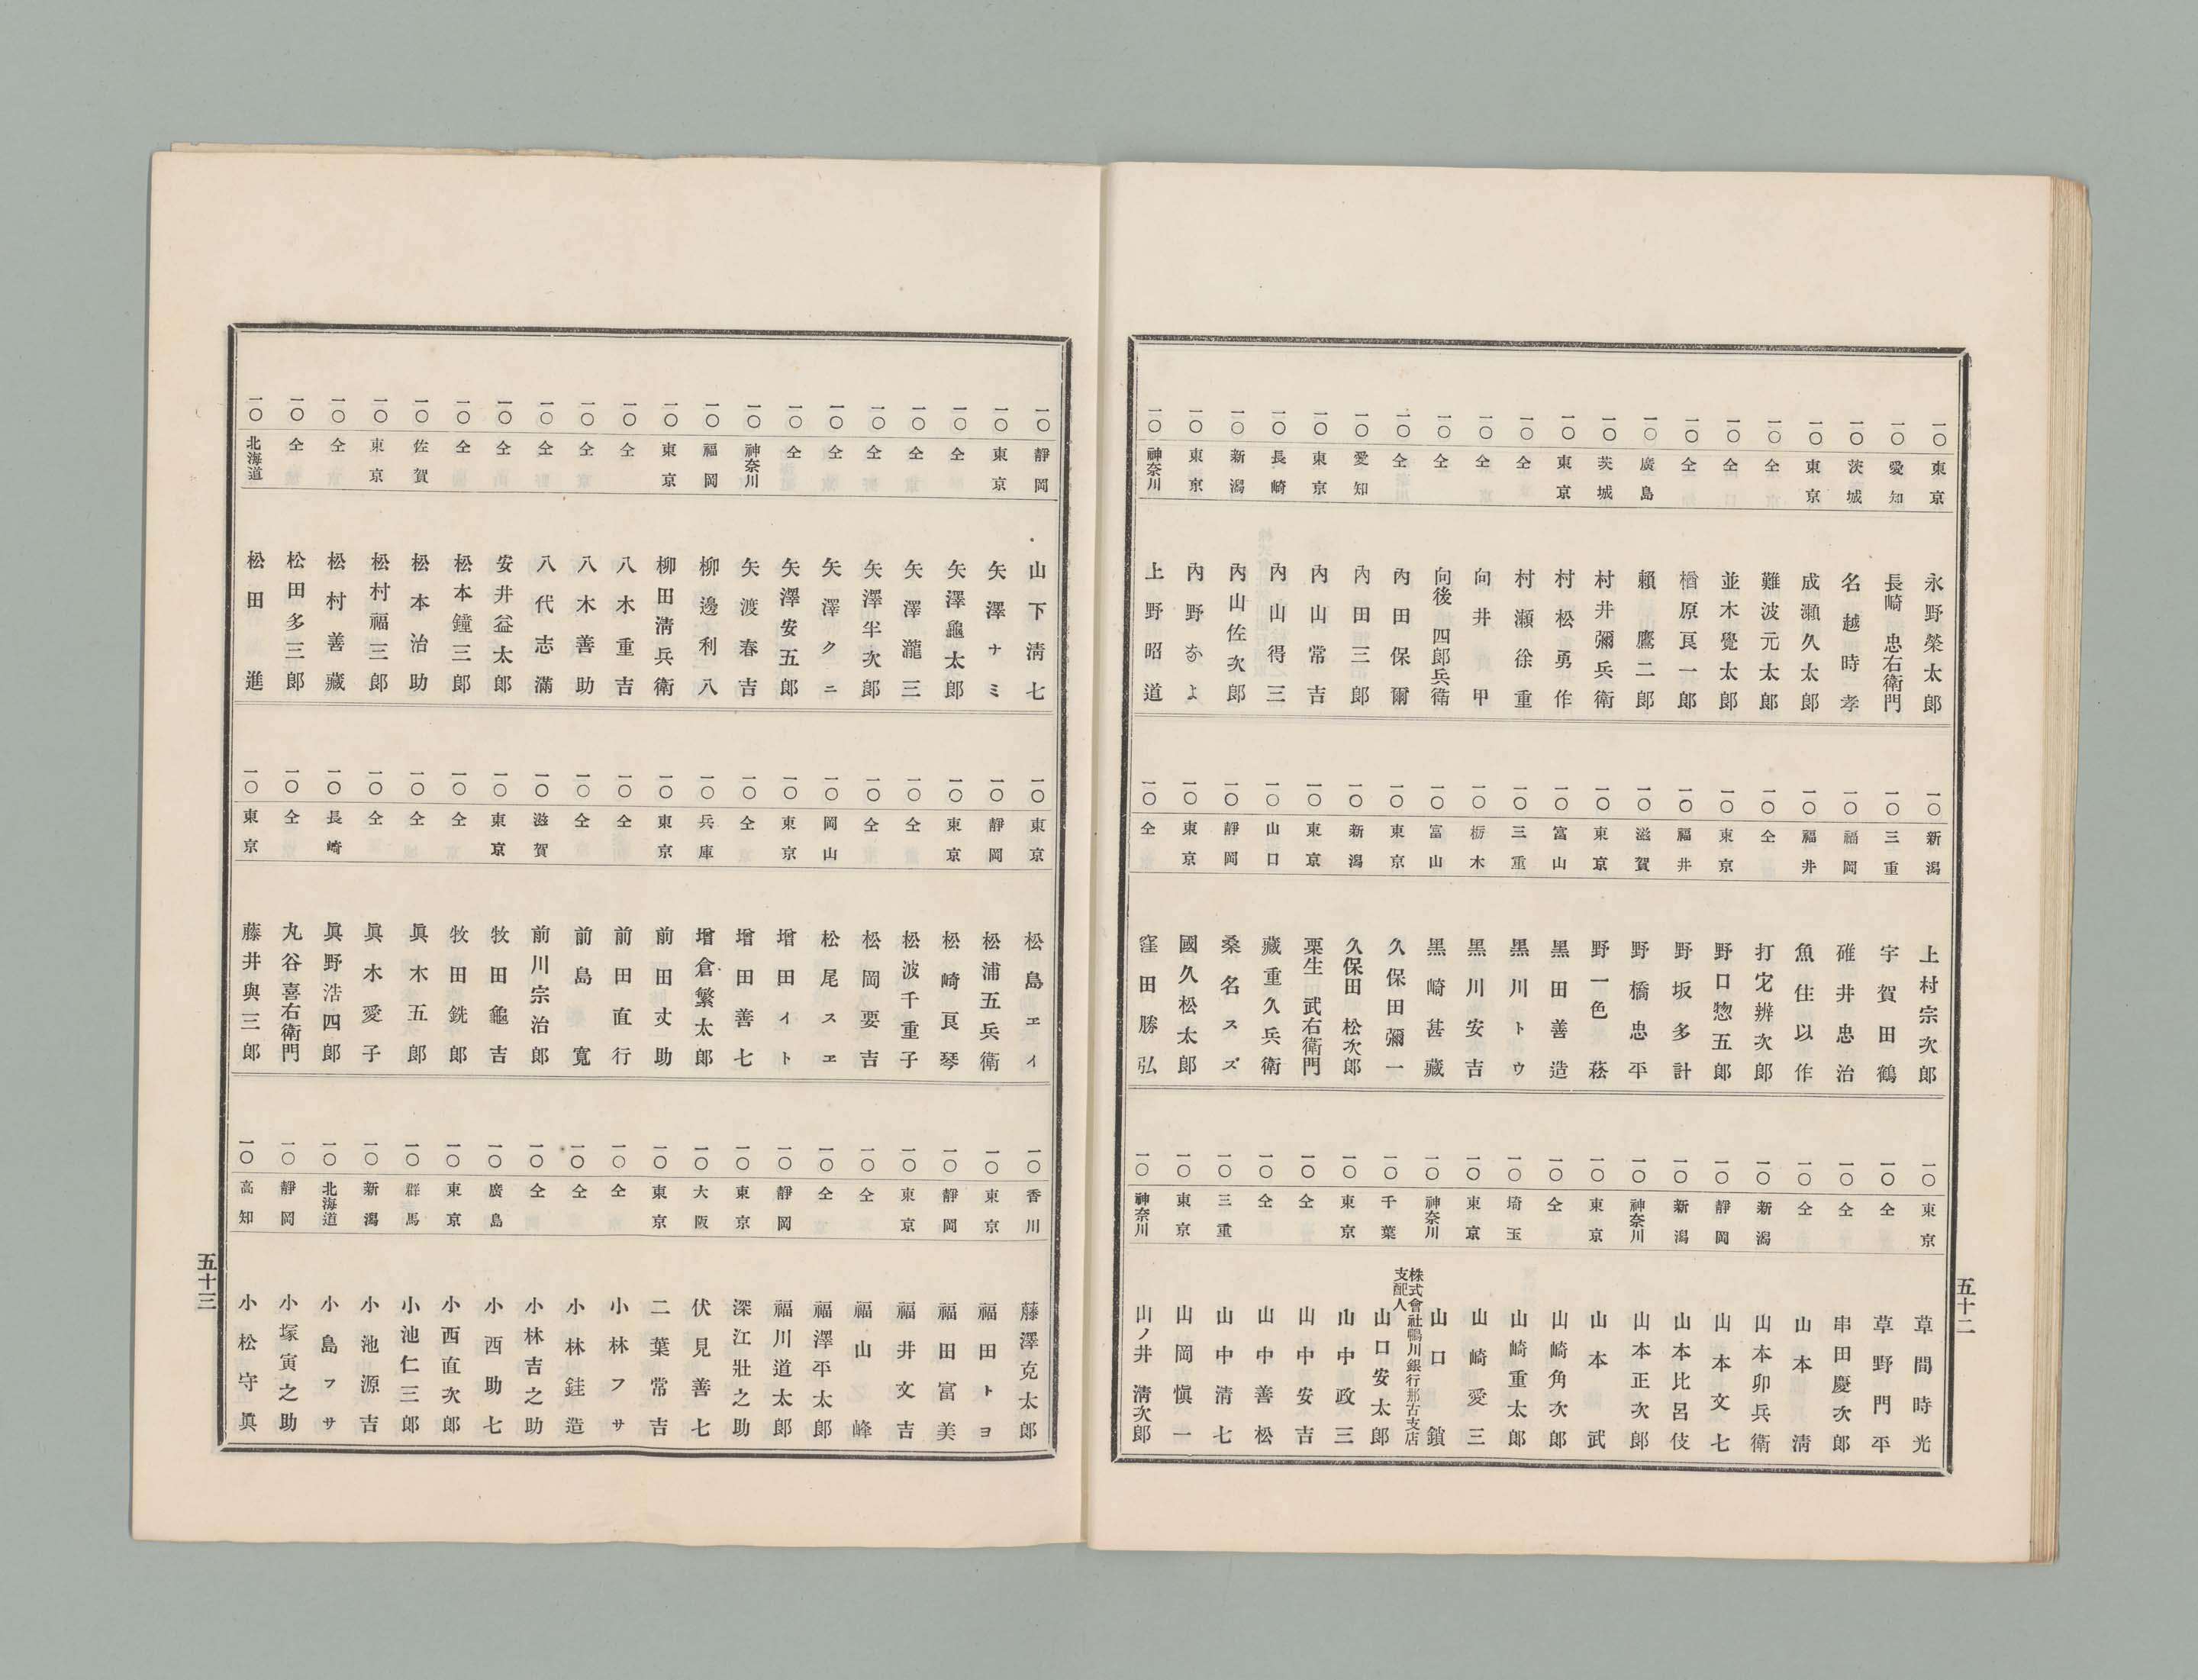 一〇 東京 永野榮太郎
一〇 愛知 長崎忠右衛門
一〇 茨城 名越時孝
一〇 東京 成瀬久太郎
一〇 仝 難波元太郎
一〇 仝 並木覺太郎
一〇 仝 楢原良一郎
一〇 廣島 賴鷹二郎
一〇 茨城 村井彌兵衛
一〇 東京 村松勇作
一〇 仝 村瀬徐重
一〇 仝 向井甲
一〇 仝 向後四郎兵衛
一〇 仝 內田保爾
一〇 愛知 內田三郎
一〇 東京 內山常吉
一〇 長崎 內山得三
一〇 新潟 內山佐次郎
一〇 東京 內野なよ
一〇 神奈川 上野昭道
一〇 新潟 上村宗次郎
一〇 三重 宇賀田鶴
一〇 福岡 碓井忠治
一〇 福井 魚住以作
一〇 仝 打它辨次郎
一〇 東京 野口惣五郎
一〇 福井 野坂多計
一〇 滋賀 野橋忠平
一〇 東京 野一色蕬
一〇 富山 黑田善造
一〇 三重 黑川トウ
一〇 栃木 黑川安吉
一〇 富山 黑崎甚藏
一〇 東京 久保田彌一
一〇 新潟 久保田松次郎
一〇 東京 栗生武右衛門
一〇 山口 藏重久兵衛
一〇 靜岡 桑名スズ
一〇 東京 國久松太郎
一〇 仝 窪田勝弘
一〇 東京 草間時光
一〇 仝 草野門平
一〇 仝 串田慶次郎
一〇 仝 山本淸
一〇 新潟 山本卯兵衛
一〇 靜岡 山本文七
一〇 新潟 山本比呂伎
一〇 神奈川 山本正次郎
一〇 東京 山本武
一〇 仝 山崎角次郎
一〇 埼玉 山崎重太郎
一〇 東京 山崎愛三
一〇 神奈川 山口鎖
一〇 千葉 株式會社鴨川銀行那古支店支配人 山口安太郎
一〇 東京 山中政三
一〇 仝 山中安吉
一〇 仝 山中善松
一〇 三重 山中淸七
一〇 東京 山岡愼一
一〇 神奈川 山ノ井淸次郎
五十二
一〇 靜岡 山下淸七
一〇 東京 矢澤ナミ
一〇 仝 矢澤龜太郎
一〇 仝 矢澤瀧三
一〇 仝 矢澤半次郎
一〇 仝 矢澤クニ
一〇 仝 矢澤安五郎
一〇 神奈川 矢渡春吉
一〇 福岡 柳邊利八
一〇 東京 柳田淸兵衛
一〇 仝 八木重吉
一〇 仝 八木善助
一〇 仝 八代志滿
一〇 仝 安井益太郎
一〇 仝 松本鐘三郎
一〇 佐賀 松本治助
一〇 東京 松村福三郎
一〇 仝 松村善藏
一〇 仝 松田多三郎
一〇 北海道 松田進
一〇 東京 松島ヱイ
一〇 靜岡 松浦五兵衛
一〇 東京 松崎良琴
一〇 仝 松波千重子
一〇 仝 松岡要吉
一〇 岡山 松尾スヱ
一〇 東京 增田イト
一〇 仝 增田善七
一〇 兵庫 增倉繁太郎
一〇 東京 前田丈助
一〇 仝 前田直行
一〇 仝 前島寬
一〇 滋賀 前川宗治郎
一〇 東京 牧田龜吉
一〇 仝 牧田銑郎
一〇 仝 眞木五郎
一〇 仝 眞木愛子
一〇 長崎 眞野浩四郎
一〇 仝 丸谷喜右衛門
一〇 東京 藤井與三郎
一〇 香川 藤澤克太郎
一〇 東京 福田トヨ
一〇 靜岡 福田富美
一〇 東京 福井文吉
一〇 仝 福山峰
一〇 仝 福澤平太郎
一〇 靜岡 福川道太郎
一〇 東京 深江壯之助
一〇 大阪 伏見善七
一〇 東京 二葉常吉
一〇 仝 小林フサ
一〇 仝 小林銈造
一〇 仝 小林吉之助
一〇 廣島 小西助七
一〇 東京 小西直次郎
一〇 群馬 小池仁三郎
一〇 新潟 小池源吉
一〇 北海道 小島フサ
一〇 靜岡 小塚寅之助
一〇 高知 小松守眞
五十三